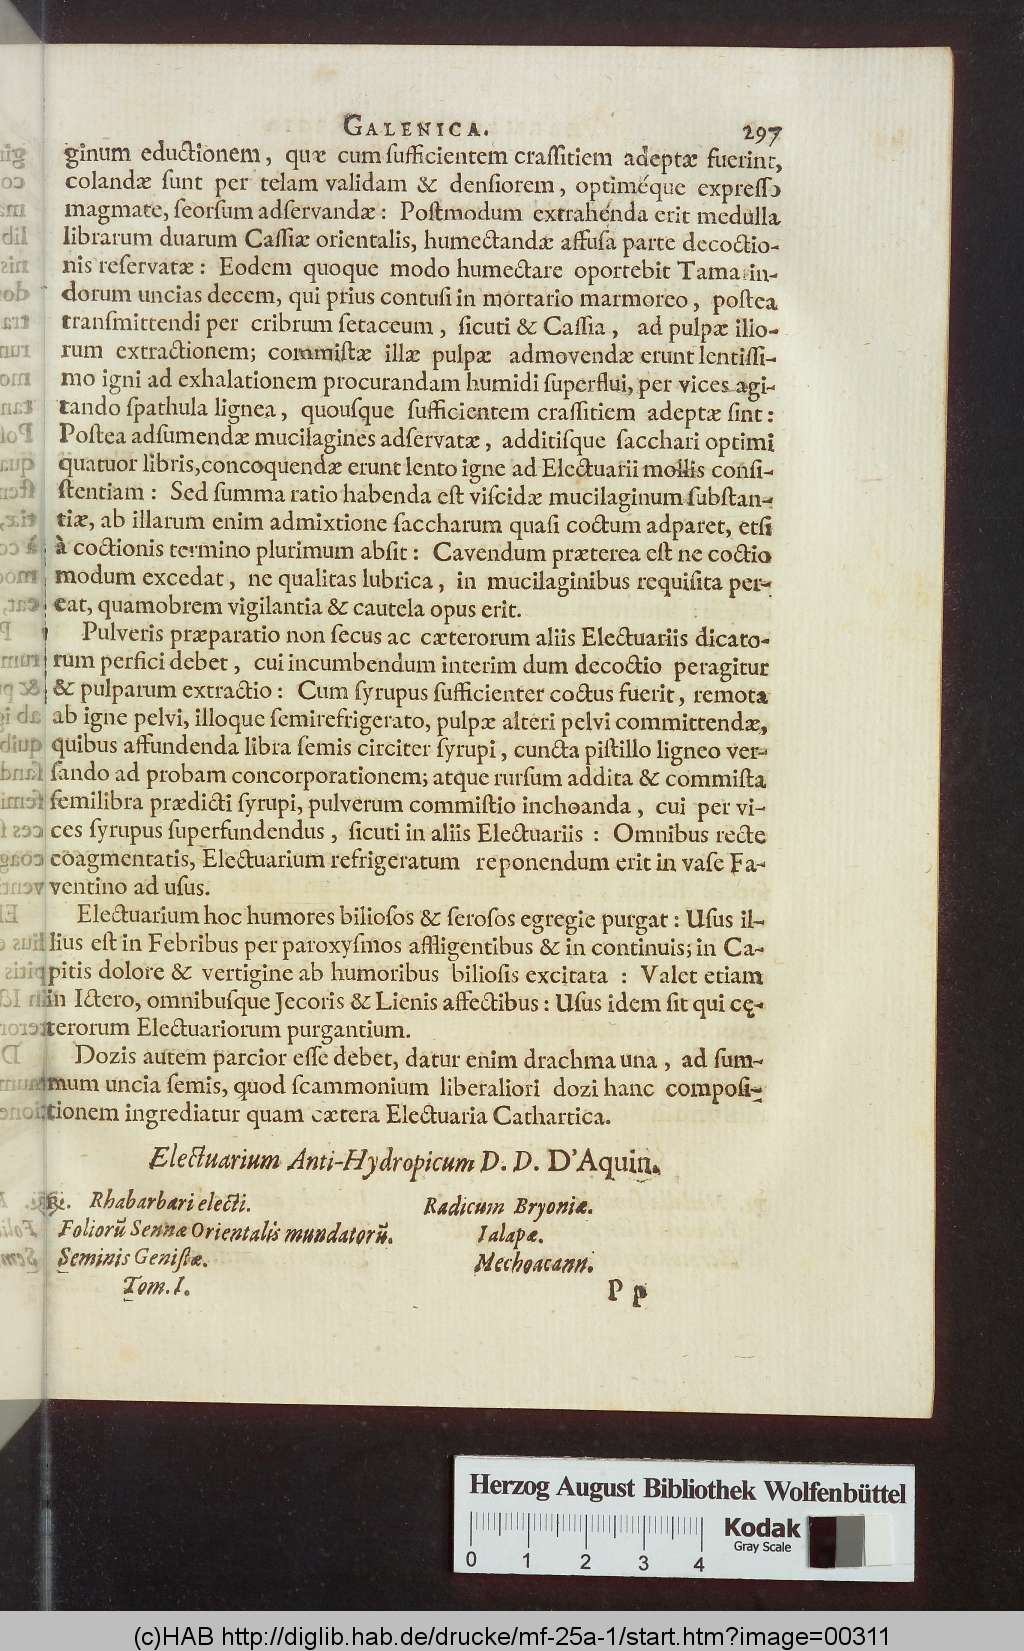 GALENICA. 297
ginum eductionem, quæ cum ſufficientem craſſitiem adeptæ fuerint,
colandæ ſunt per telam validam & denſiorem, optiméque expreſſo
magmate, ſeorſum adſervandæ: Poſtmodum extrahénda erit medulla
librarum duarum Caſſiæ orientalis, humectandæ affuſa parte decoctio-
nis reſervatæ: Eodem quoque modo humectare oportebit Tamarin-
dorum uncias decem, qui prius contuſi in mortario marmoreo, poſtea
tranſmittendi per cribrum ſetaceum, ſicuti & Caſſia, ad pulpæ illo-
rum extractionem; commiſtæ illæ pulpæ admovendæ erunt lentiſſi-
mo igni ad exhalationem procurandam humidi ſuperflui, per vices agi-
tando ſpathula lignea, quouſque ſufficientem craſſitiem adeptæ ſint:
Poſtea adſumendæ mucilagines adſervatæ, additiſque ſacchari optimi
quatuor libris, concoquendæ erunt lento igne ad Electuarii mollis conſi-
ſtentiam: Sed ſumma ratio habenda eſt viſcidæ mucilaginum ſubſtan-
tiæ, ab illarum enim admixtione ſaccharum quaſi coctum adparet, etſi
à coctionis termino plurimum abſit: Cavendum præterea eſt ne coctio
modum excedat, ne qualitas lubrica, in mucilaginibus requiſita per-
eat, quamobrem vigilantia & cautela opus erit.
Pulveris præparatio non ſecus ac cæterorum aliis Electuariis dicato-
rum perfici debet, cui incumbendum interim dum decoctio peragitur
& pulparum extractio: Cum ſyrupus ſufficienter coctus fuerit, remota
ab igne pelvi, illoque ſemirefrigerato, pulpæ alteri pelvi committendæ,
quibus affundenda libra ſemis circiter ſyrupi, cuncta piſtillo ligneo ver-
ſando ad probam concorporationem; atque rurſum addita & commiſta
ſemilibra prædicti ſyrupi, pulverum commiſtio inchoanda, cui per vi-
ces ſyrupus ſuperfundendus, ſicuti in aliis Electuariis: Omnibus recte
coagmentatis, Electuarium refrigeratum reponendum erit in vaſe Fa-
ventino ad uſus.
Electuarium hoc humores bilioſos & ſeroſos egregie purgat: Uſus il-
lius eſt in Febribus per paroxyſmos affligentibus & in continuis; in Ca-
pitis dolore & vertigine ab humoribus bilioſis excitata: Valet etiam
in Ictero, omnibuſque Jecoris & Lienis affectibus: Uſus idem ſit qui cę-
terorum Electuariorum purgantium.
Dozis autem parcior eſſe debet, datur enim drachma una, ad ſum-
mum uncia ſemis, quod ſcammonium liberaliori dozi hanc compoſi-
tionem ingrediatur quam cætera Electuaria Cathartica.
Electuarium Anti-Hydropicum D. D. D'Aquin.
℞. Rhabarbari electi. Radicum Bryoniæ.
Foliorũ Sennæ Orientalis mundatorũ. Ialapæ.
Seminis Geniſtæ. Mechoacann.
Tom. I. P p
Herzog August Bibliothek Wolfenbüttel
Kodak
Gray Scale
0 1 2 3 4
(c)HAB http://diglib.hab.de/drucke/mf-25a-1/start.htm?image=00311